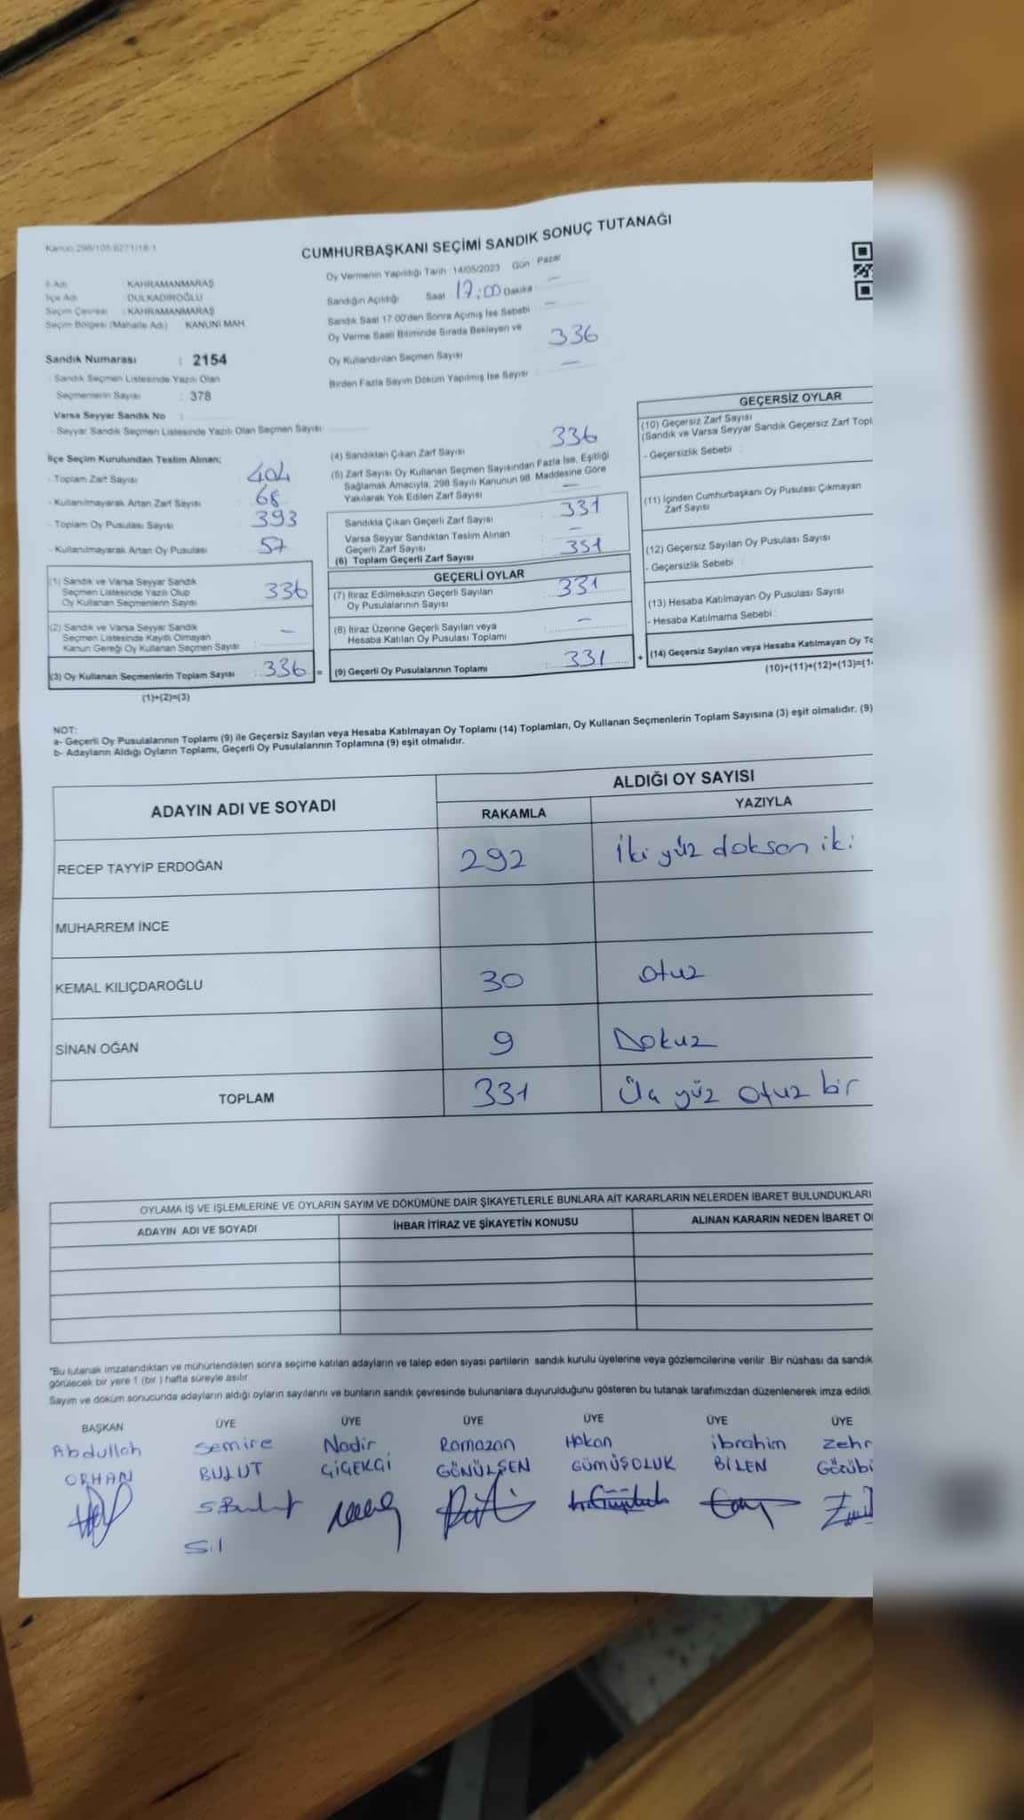 Kanun 298/105-6271/18-1
CUMHURBAŞKANI SEÇİMİ SANDIK SONUÇ TUTANAĞI
İl Adı : KAHRAMANMARAŞ
İlçe Adı : DULKADİROĞLU
Seçim Çevresi : KAHRAMANMARAŞ
Seçim Bölgesi (Mahalle Adı) : KANUNİ MAH.
Oy Vermenin Yapıldığı Tarih : 14/05/2023 Gün : Pazar
Sandığın Açıldığı Saat 17:00 Dakika
Sandık Saat 17.00'den Sonra Açılmış İse Sebebi
Oy Verme Saati Bitiminde Sırada Bekleyen ve
Oy Kullandırılan Seçmen Sayısı 336
Birden Fazla Sayım Döküm Yapılmış İse Sayısı —
Sandık Numarası : 2154
Sandık Seçmen Listesinde Yazılı Olan
Seçmenlerin Sayısı : 378
Varsa Seyyar Sandık No :
- Seyyar Sandık Seçmen Listesinde Yazılı Olan Seçmen Sayısı
İlçe Seçim Kurulundan Teslim Alınan;
- Toplam Zarf Sayısı 404
- Kullanılmayarak Artan Zarf Sayısı 68
- Toplam Oy Pusulası Sayısı 393
- Kullanılmayarak Artan Oy Pusulası 57
(1) Sandık ve Varsa Seyyar Sandık
Seçmen Listesinde Yazılı Olup
Oy Kullanan Seçmenlerin Sayısı 336
(2) Sandık ve Varsa Seyyar Sandık
Seçmen Listesinde Kayıtlı Olmayan
Kanun Gereği Oy Kullanan Seçmen Sayısı —
(3) Oy Kullanan Seçmenlerin Toplam Sayısı : 336 =
(1)+(2)=(3)
(4) Sandıktan Çıkan Zarf Sayısı 336
(5) Zarf Sayısı Oy Kullanan Seçmen Sayısından Fazla İse, Eşitliği
Sağlamak Amacıyla, 298 Sayılı Kanunun 98. Maddesine Göre
Yakılarak Yok Edilen Zarf Sayısı —
Sandıkta Çıkan Geçerli Zarf Sayısı : 331
Varsa Seyyar Sandıktan Teslim Alınan
Geçerli Zarf Sayısı —
(6) Toplam Geçerli Zarf Sayısı 331
GEÇERLİ OYLAR
(7) İtiraz Edilmeksizin Geçerli Sayılan
Oy Pusulalarının Sayısı 331
(8) İtiraz Üzerine Geçerli Sayılan veya
Hesaba Katılan Oy Pusulası Toplamı —
(9) Geçerli Oy Pusulalarının Toplamı : 331 +
GEÇERSİZ OYLAR
(10) Geçersiz Zarf Sayısı
(Sandık ve Varsa Seyyar Sandık Geçersiz Zarf Topl
- Geçersizlik Sebebi :
(11) İçinden Cumhurbaşkanı Oy Pusulası Çıkmayan
Zarf Sayısı
(12) Geçersiz Sayılan Oy Pusulası Sayısı
- Geçersizlik Sebebi :
(13) Hesaba Katılmayan Oy Pusulası Sayısı
- Hesaba Katılmama Sebebi :
(14) Geçersiz Sayılan veya Hesaba Katılmayan Oy To
(10)+(11)+(12)+(13)=(1
NOT:
a- Geçerli Oy Pusulalarının Toplamı (9) ile Geçersiz Sayılan veya Hesaba Katılmayan Oy Toplamı (14) Toplamları, Oy Kullanan Seçmenlerin Toplam Sayısına (3) eşit olmalıdır. (9)
b- Adayların Aldığı Oyların Toplamı, Geçerli Oy Pusulalarının Toplamına (9) eşit olmalıdır.
ADAYIN ADI VE SOYADI
ALDIĞI OY SAYISI
RAKAMLA YAZIYLA
RECEP TAYYİP ERDOĞAN 292 İki yüz doksan iki
MUHARREM İNCE
KEMAL KILIÇDAROĞLU 30 otuz
SİNAN OĞAN 9 Dokuz
TOPLAM 331 Üç yüz otuz bir
OYLAMA İŞ VE İŞLEMLERİNE VE OYLARIN SAYIM VE DÖKÜMÜNE DAİR ŞİKAYETLERLE BUNLARA AİT KARARLARIN NELERDEN İBARET BULUNDUKLARI
ADAYIN ADI VE SOYADI İHBAR İTİRAZ VE ŞİKAYETİN KONUSU ALINAN KARARIN NEDEN İBARET O
"Bu tutanak imzalandıktan ve mühürlendikten sonra seçime katılan adayların ve talep eden siyasi partilerin sandık kurulu üyelerine veya gözlemcilerine verilir. Bir nüshası da sandık
görülecek bir yere 1 (bir ) hafta süreyle asılır.
Sayım ve döküm sonucunda adayların aldığı oyların sayılarını ve bunların sandık çevresinde bulunanlara duyurulduğunu gösteren bu tutanak tarafımızdan düzenlenerek imza edildi.
BAŞKAN ÜYE ÜYE ÜYE ÜYE ÜYE ÜYE
Abdullah Semire Nadir Ramazan Hakan ibrahim Zehr
ORHAN BULUT ÇİÇEKÇİ GÖNÜLŞEN GÜMÜŞOLUK BİLEN Gözübi
S.Bulut
Sil